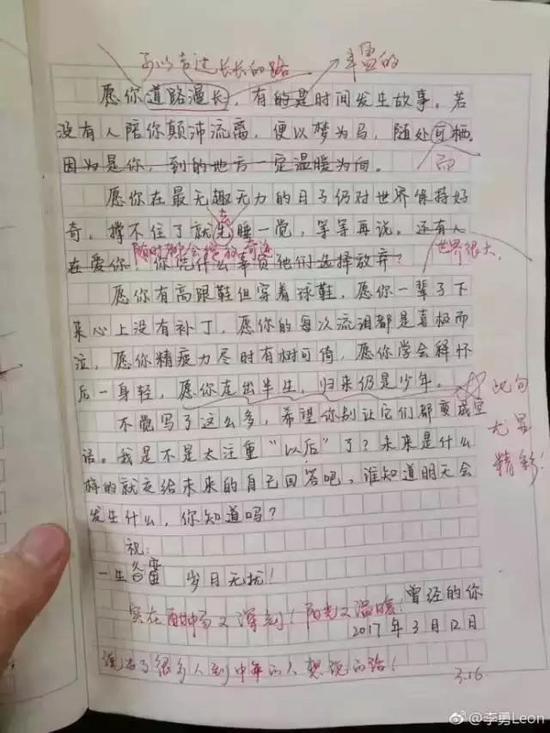 可以走过长长的路 丰盈的
愿你道路漫长,有的是时间发生故事。若
没有人陪你颠沛流离,便以梦为马,随处可栖。
因为是你,到的地方一定温暖为向。 而
愿你在最无趣无力的日子仍对世界保持好
奇,撑不住了就先睡一觉,等等再说。还有人
随时都会 世界很大
在爱你,你凭什么辜负他们选择放弃?
愿你有高跟鞋但穿着球鞋,愿你一辈子下
来心上没有补丁,愿你的每次流泪都是喜极而
泣,愿你精疲力尽时有树可倚,愿你学会释怀
后一身轻,愿你走出半生,归来仍是少年。 此句
不觉写了这么多,希望你别让它们都变成空 尤显
话。我是不是太注重“以后”了?未来是什么 精彩!
样的就交给未来的自己回答吧,谁知道明天会
发生什么,你知道吗?
祝:
一生 岁月无扰!
实在酣畅又深刻!阳光又温暖! 曾经的你
2017年3月12日
说出了很多人到中年的人想说的话! 3.16
@李勇Leon